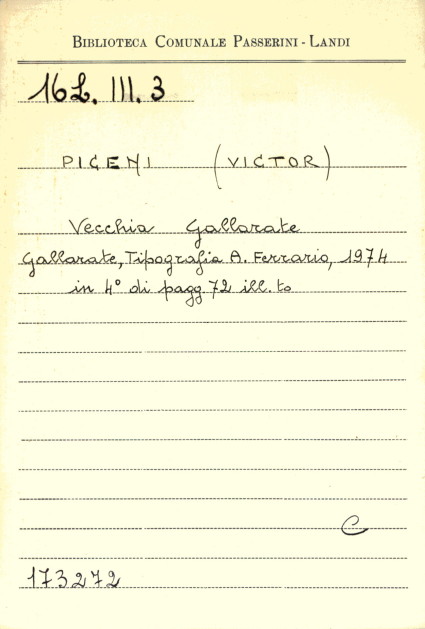 BIBLIOTECA COMUNALE PASSERINI - LANDI
16L. III. 3
PIGENI (VICTOR)
Vecchia Gallarate
Gallarate, Tipografia A. Ferrario, 1974
in 4° di pagg 72 ill.to
C
173272